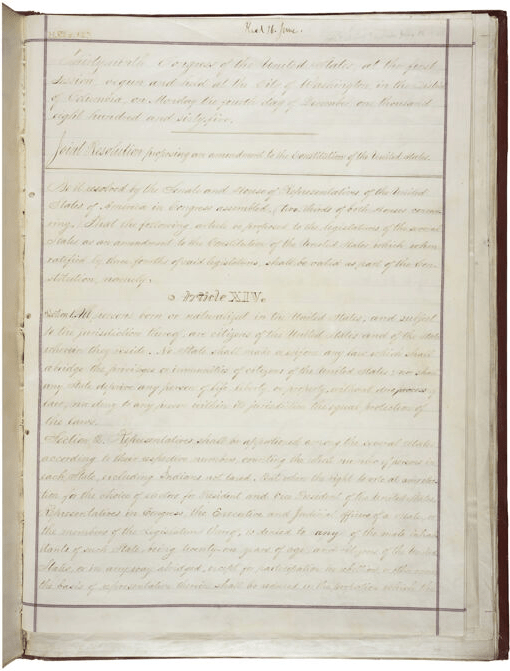 Thirty-ninth Congress of the United States, at the first
Session, begun and held at the City of Washington, in the District
of Columbia, on Monday the fourth day of December, one thousand
eight hundred and sixty-five.
Joint Resolution proposing an amendment to the Constitution of the United States.
Be it resolved by the Senate and House of Representatives of the United
States of America in Congress assembled, (two thirds of both Houses concur-
ring,) That the following article be proposed to the legislatures of the several
States as an amendment to the Constitution of the United States, which, when
ratified by three fourths of said legislatures, shall be valid as part of the Con-
stitution, namely:
Article XIV.
Section 1. All persons born or naturalized in the United States, and subject
to the jurisdiction thereof, are citizens of the United States and of the State
wherein they reside. No State shall make or enforce any law which shall
abridge the privileges or immunities of citizens of the United States; nor shall
any State deprive any person of life, liberty, or property, without due process of
law, nor deny to any person within its jurisdiction the equal protection of
the laws.
Section 2. Representatives shall be apportioned among the several States
according to their respective numbers, counting the whole number of persons in
each State, excluding Indians not taxed. But when the right to vote at any elec-
tion for the choice of electors for President and Vice President of the United States,
Representatives in Congress, the Executive and Judicial officers of a State, or
the members of the Legislature thereof, is denied to any of the male inhab-
itants of such State, being twenty-one years of age, and citizens of the United
States, or in any way abridged, except for participation in rebellion, or other crime,
the basis of representation therein shall be reduced in the proportion which the